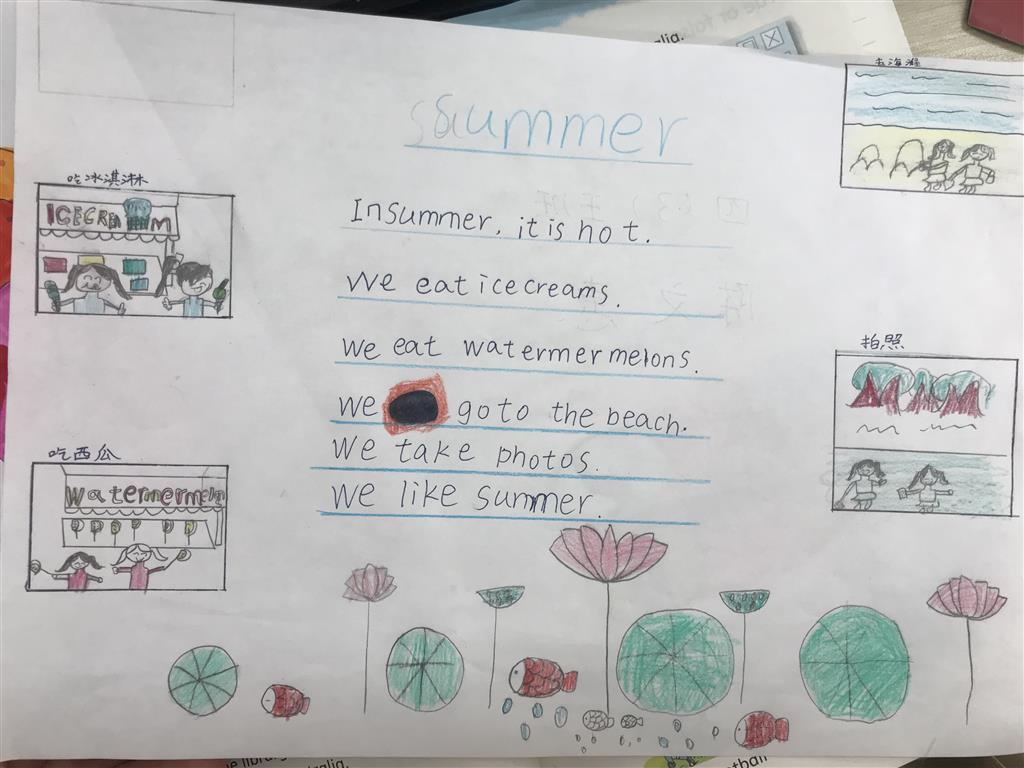 Summer
In summer, it is hot.
We eat icecreams.
We eat watermermelons.
We go to the beach.
We take photos.
We like summer.
吃冰淇淋
ICECREAM
吃西瓜
Watermermelon
去海滩
拍照
alia.